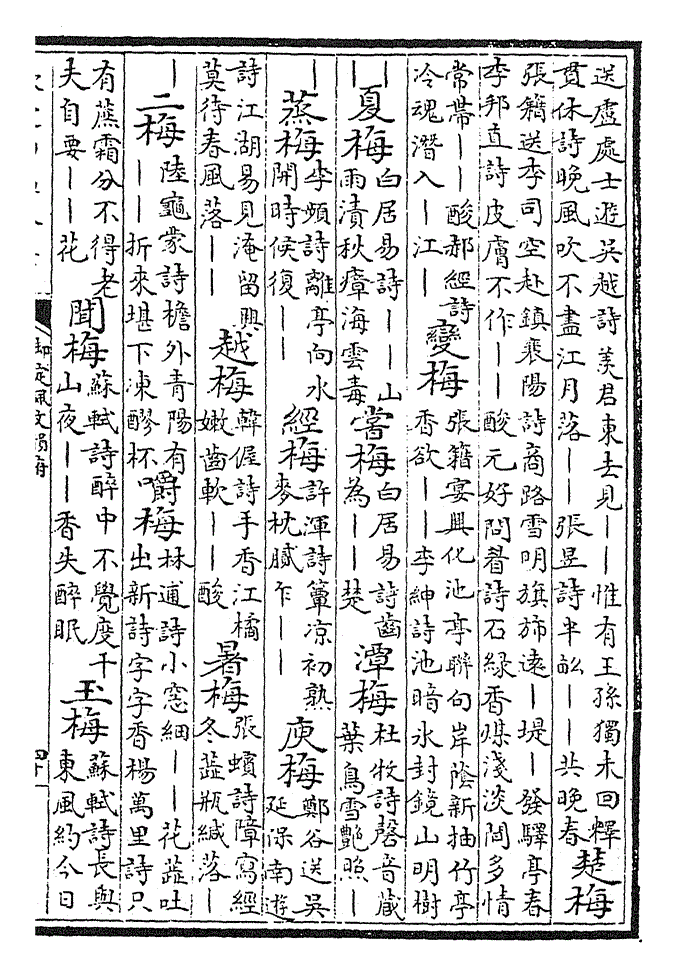 送盧處士遊吳越詩羨君東去見——惟有王孫獨未回釋
貫休詩晚風吹不盡江月落——張昱詩半酣——共晚春
楚梅
張籍送李司空赴鎮襄陽詩商路雪明旗旆遠—堤—發驛亭春
李邦直詩皮膚不作——酸元好問眷詩石綠香煤淺淡間多情
常帶——酸郝經詩
冷魂潛入—江—
變梅
張籍宴興化池亭聯句岸蔭新抽竹亭
香欲——李紳詩池暗冰封鏡山明樹
—
夏梅
白居易詩——山
雨漬秋瘴海雲毒
嘗梅
白居易詩齒
為——楚
潭梅
杜牧詩磬音藏
葉鳥雪艷照—
—
蒸梅
李頻詩離亭向水
開時候復——
經梅
許渾詩簟涼初熟
麥枕膩乍——
庾梅
鄭谷送吳
延保南遊
詩江湖易見淹留興
莫待春風落——
越梅
韓偓詩手香江橘
嫩齒軟——酸
暑梅
張蠙詩障寫經
冬蘂瓶緘落—
—
二梅
陸龜蒙詩檐外青陽有
——折來堪下凍醪杯
嚼梅
林逋詩小窓細——花蘂吐
出新詩字字香楊萬里詩只
有蘸霜分不得老
夫自要——花
聞梅
蘇軾詩醉中不覺度千
山夜——香失醉眠
玉梅
蘇軾詩長與
東風約今日
御定佩文韻府